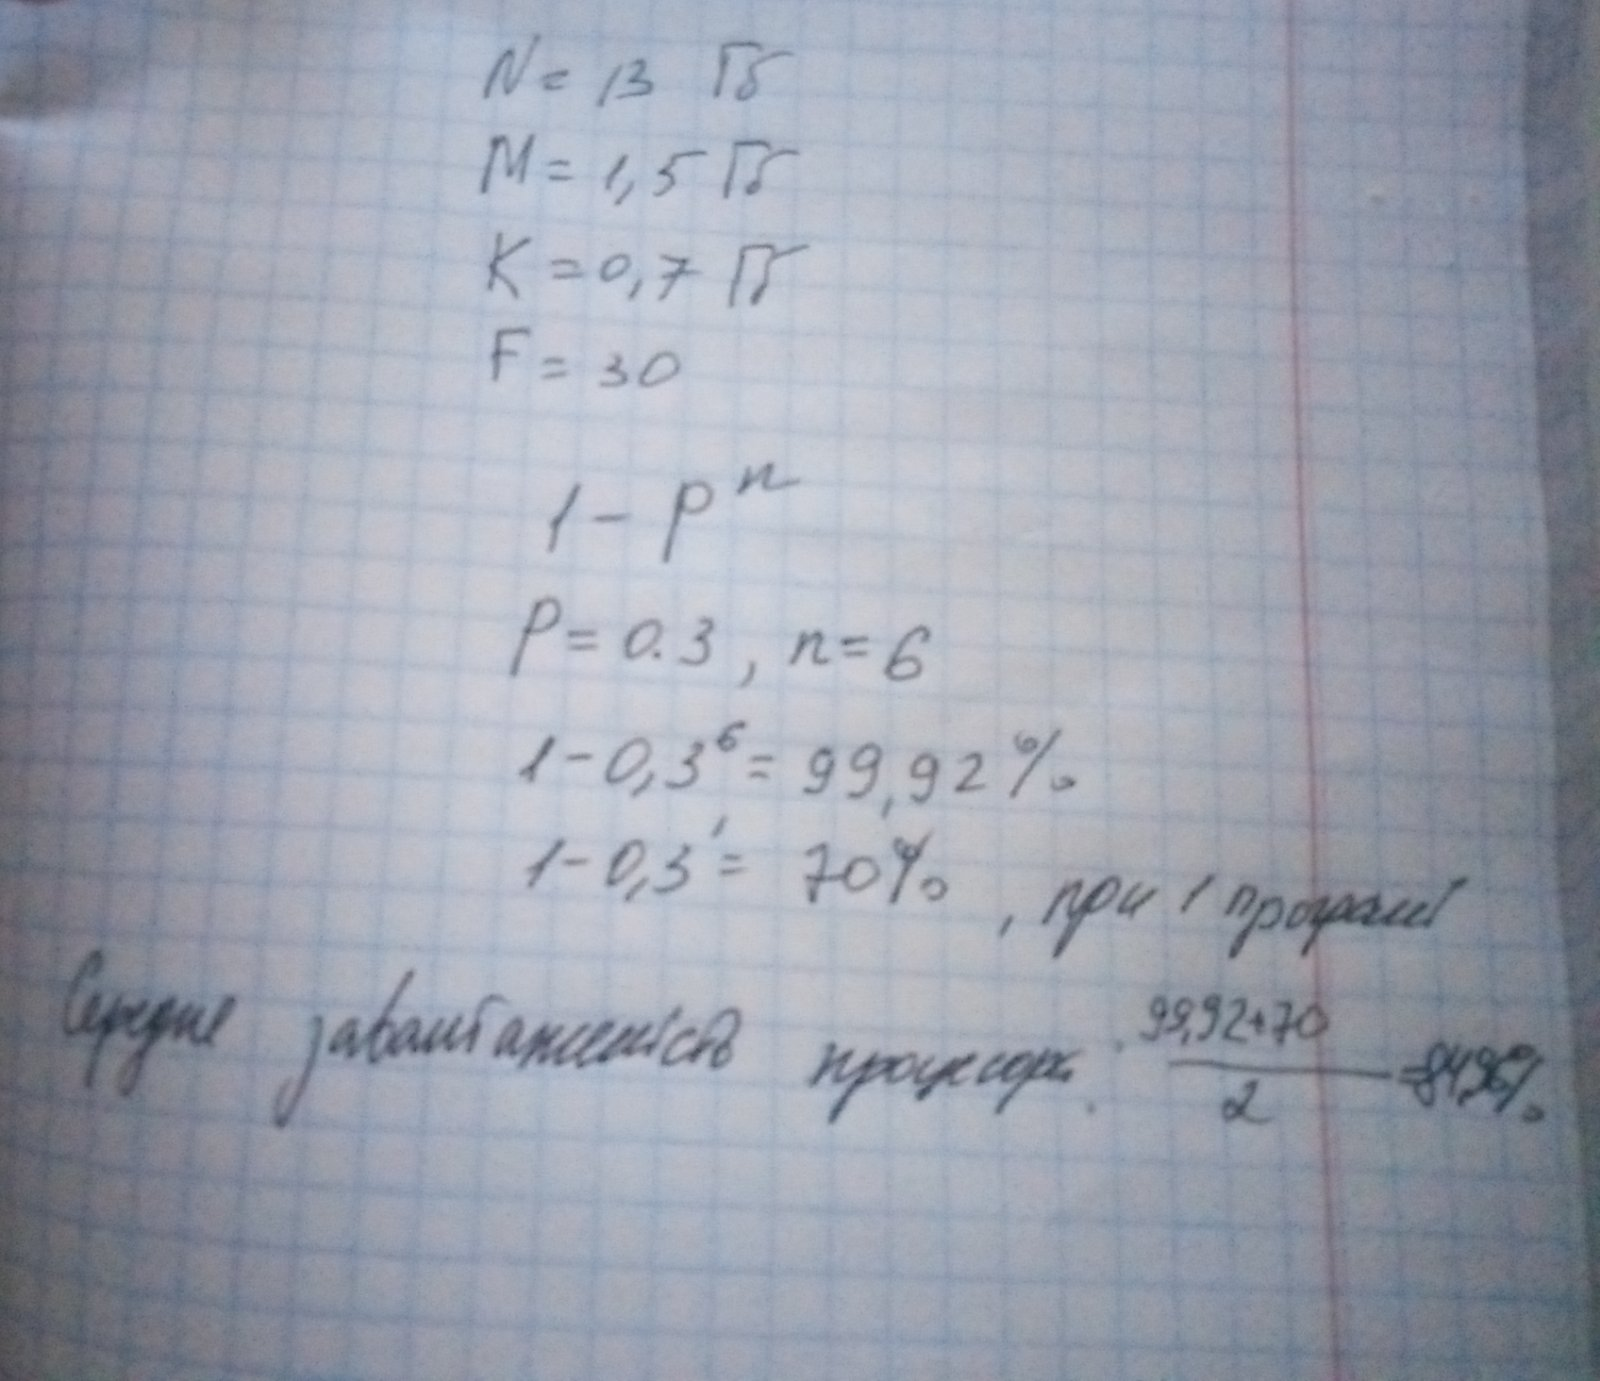 N = 13 Гб
M = 1,5 Гб
K = 0,7 Гб
F = 30
1 - pⁿ
P = 0.3 , n = 6
1 - 0,3⁶ = 99,92 %
1 - 0,3¹ = 70% , при 1 програмі
Середнє завантаженість процесора: (99,92+70)/2 = 84,96%